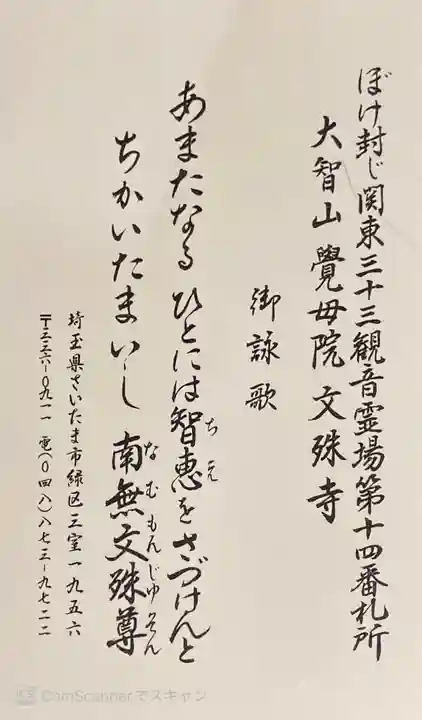 ぼけ封じ関東三十三観音霊場第十四番札所
大智山 覺母院 文殊寺
御詠歌
あまたなる ひとには智恵をさづけんと
ちえ
ちかいたまいし 南無文殊尊
なむもんじゅそん
埼玉県さいたま市緑区三室一九五六
〒三三六-〇九一一 電(〇四八)八七三-九七二二
CS CamScannerでスキャン